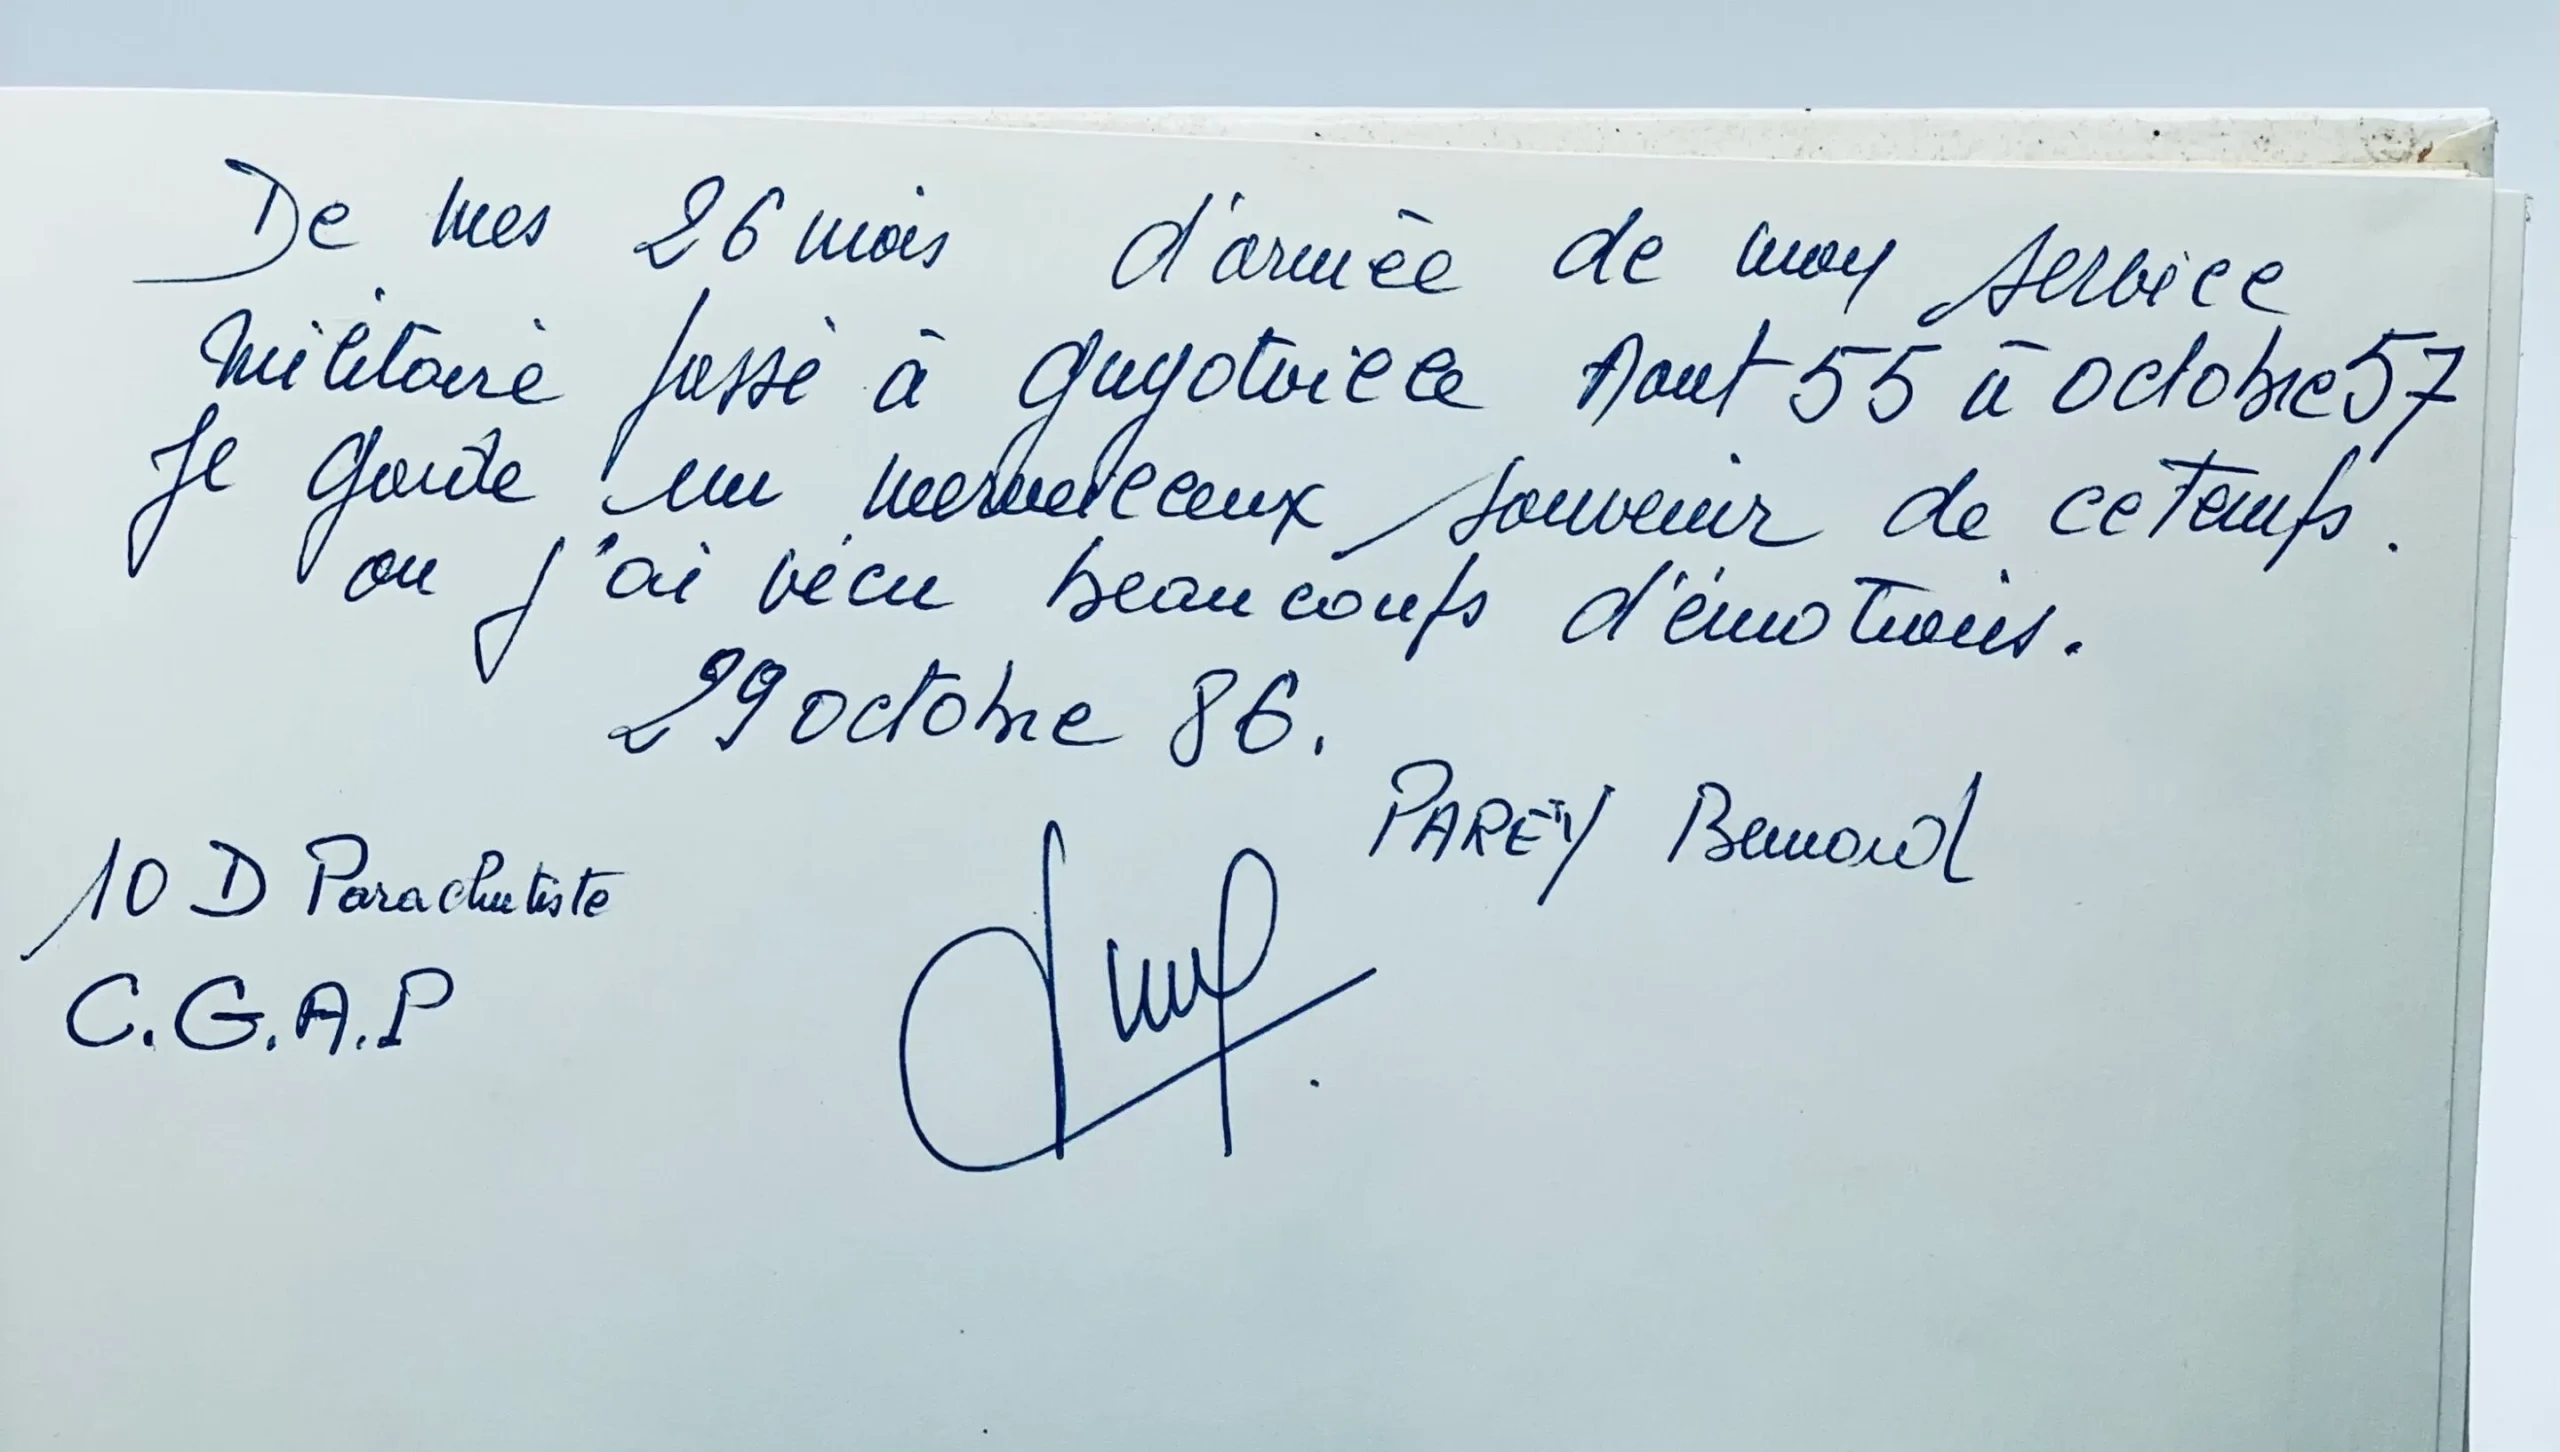 De mes 26 mois d'armée de mon service
militaire passé à Guyotville Aout 55 à octobre 57
Je garde un merveilleux souvenir de ce temps.
ou j'ai vécu beaucoups d'émotions.
29 octobre 86.
PAREY Bernard
10 D Parachutiste
C.G.A.P